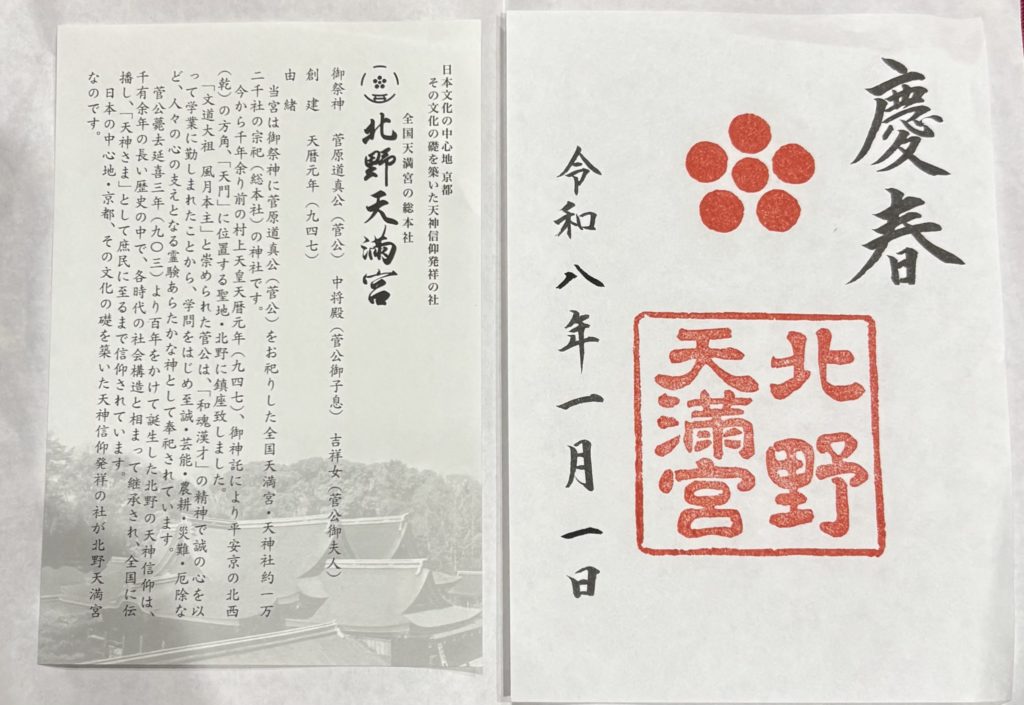 慶春
北野
天満宮
令和八年一月一日
日本文化の中心地 京都
その文化の礎を築いた天神信仰発祥の社
全国天満宮の総本社
北野天満宮
御祭神 菅原道真公(菅公) 中将殿(菅公御子息) 吉祥女(菅公御夫人)
創建 天暦元年(九四七)
由緒
当宮は御祭神に菅原道真公(菅公)をお祀りした全国天満宮・天神社約一万
二千社の宗祀(総本社)の神社です。
今から千年余り前の村上天皇天暦元年(九四七)、御神託により平安京の北西
(乾)の方角、「天門」に位置する聖地・北野に鎮座致しました。
「文道大祖 風月本主」と崇められた菅公は、「和魂漢才」の精神で誠の心を以
って学業に勤しまれたことから、学問をはじめ至誠・芸能・農耕・災難・厄除な
ど、人々の心の支えとなる霊験あらたかな神として奉祀されています。
菅公薨去延喜三年(九〇三)より百年をかけて誕生した北野の天神信仰は、
千有余年の長い歴史の中で、各時代の社会構造と相まって継承され、全国に伝
播し、「天神さま」として庶民に至るまで信仰されています。
日本の中心地・京都、その文化の礎を築いた天神信仰発祥の社が北野天満宮
なのです。